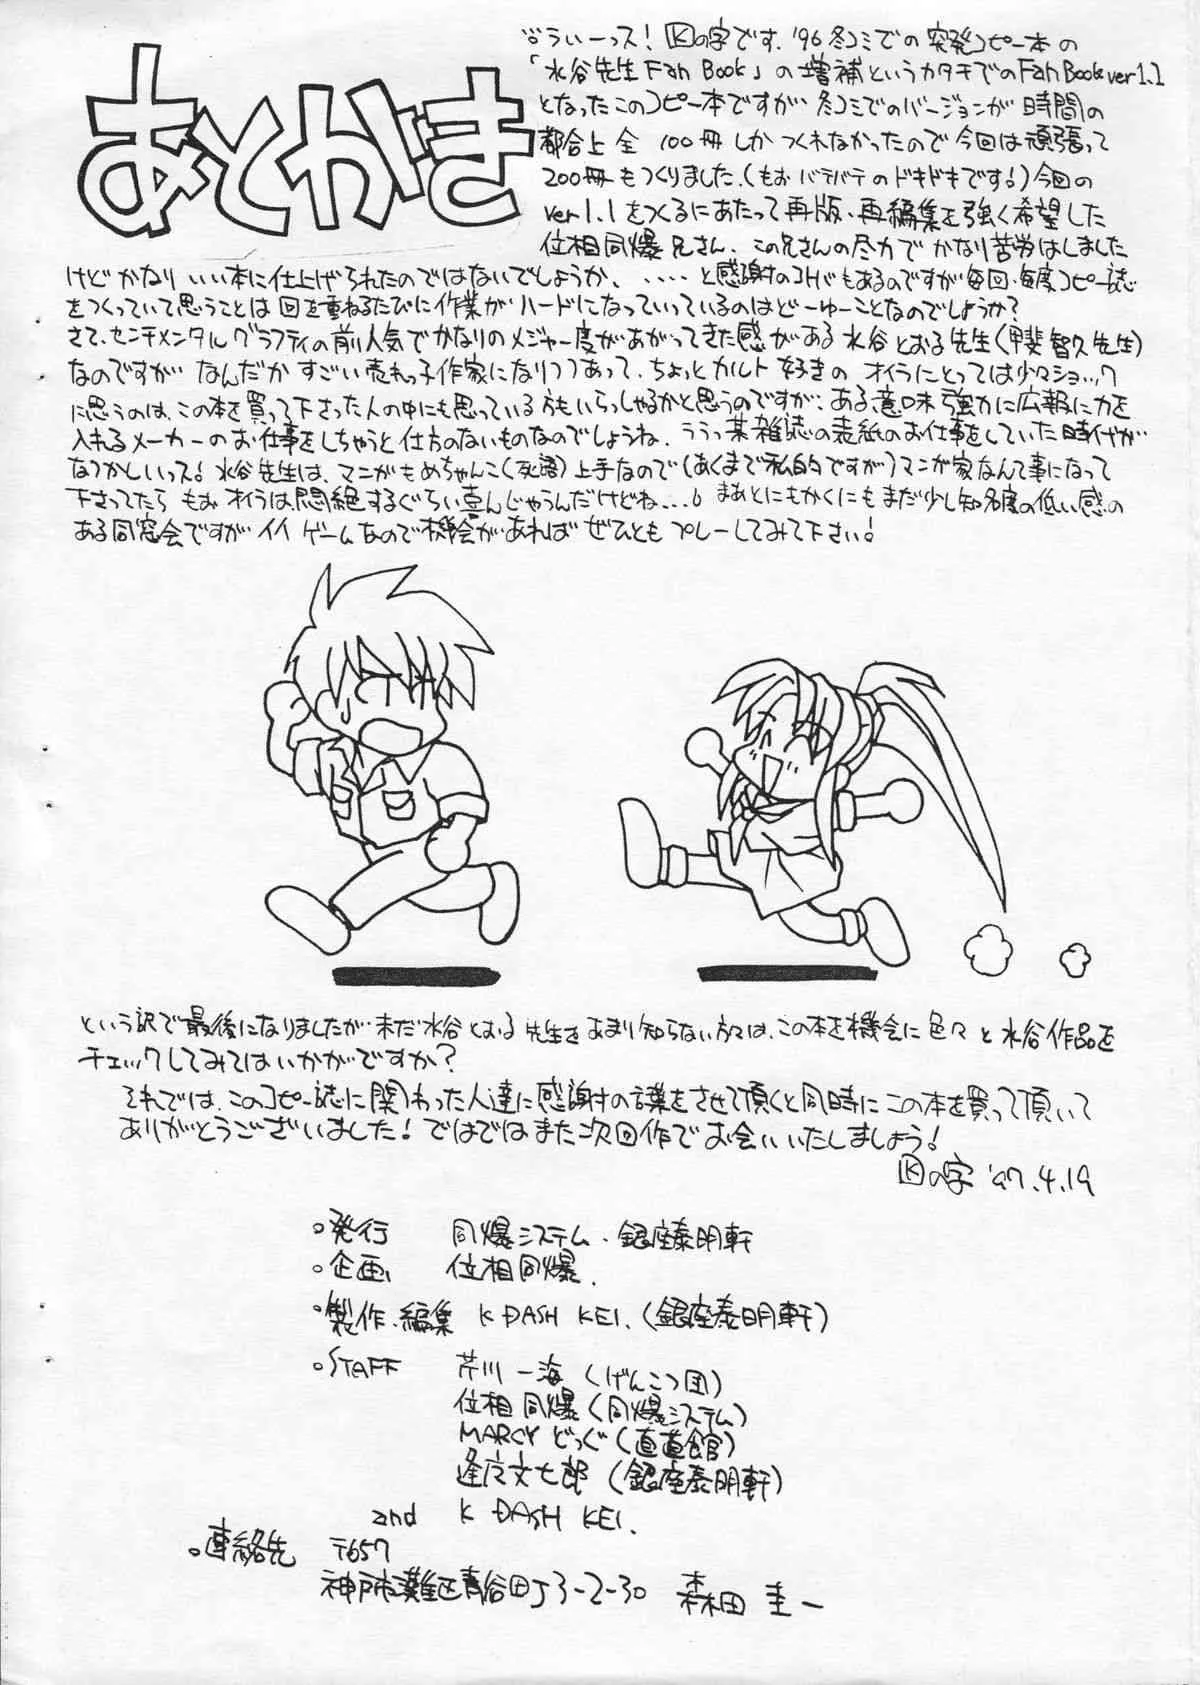 あとがき
うぃーっス! Kの字です。'96冬コミでの突発コピー本の
「水谷先生Fan Book」の増補というカタチでのFan Book ver1.1
となったこのコピー本ですが 冬コミでのバージョンが時間の
都合上 全 100冊しか つくれなかったので 今回は頑張って
200冊もつくりました。(もお バテバテのドキドキです!)今回の
ver1.1をつくるにあたって再版、再編集を強く希望した
位相同爆兄さん、この兄さんの尽力で かなり苦労はしました
けど かなり いい本に仕上げられたのではないでしょうか、、、、、と感謝のコトバもあるのですが毎回、毎度コピー誌
をつくっていて思うことは 回を重ねるたびに作業が ハードになっていっているのはどーゆーことなのでしょうか?
さて、センチメンタル グラフティの前人気でかなりのメジャー度があがってきた感がある 水谷とおる先生(甲斐智久先生)
なのですが なんだか すごい売れっ子作家になりつつあって、ちょっとカルト 好きの オイラにとっては少々ショック
に思うのは、この本を買って下さった人の中にも思っている方もいらっしゃるかと思うのですが、ある意味強力に広報に力を
入れるメーカーのお仕事をしちゃうと仕方のないものなのでしょうね、ううっ某雑誌の表紙のお仕事をしていた時代が
なつかしいっス! 水谷先生は、マンガもめちゃんこ(死語)上手なので(あくまで私的ですが)マンガ家なんて事になって
下さってたら もお オイラは悶絶するぐらい喜んじゃうんだけどね...。 まあとにもかくにも まだ少し知名度の低い感の
ある同窓会ですが イイ ゲームなので機会があれば ぜひとも プレーしてみて下さい!
という訳で最後になりましたが 未だ水谷とおる先生をあまり知らない方々は、この本を機会に色々と水谷作品を
チェックしてみてはいかがですか?
それでは、このコピー誌に関わった人達に感謝の言葉をさせて頂くと同時にこの本を買って頂いて
ありがとうございました! ではではまた次回作で お会いいたしましょう!
Kの字 '97.4.19
。発行 同爆システム・銀座泰明軒
。企画 位相同爆.
。製作・編集 K DASH KEI. (銀座泰明軒)
。STAFF 芹川一海(げんこつ団)
位相同爆(同爆システム)
MARCY どっぐ(直道館)
逢文七郎 (銀座泰明軒)
and K DASH KEI.
。連絡先 〒657
神戸市灘区青谷町3-2-30 森田圭一